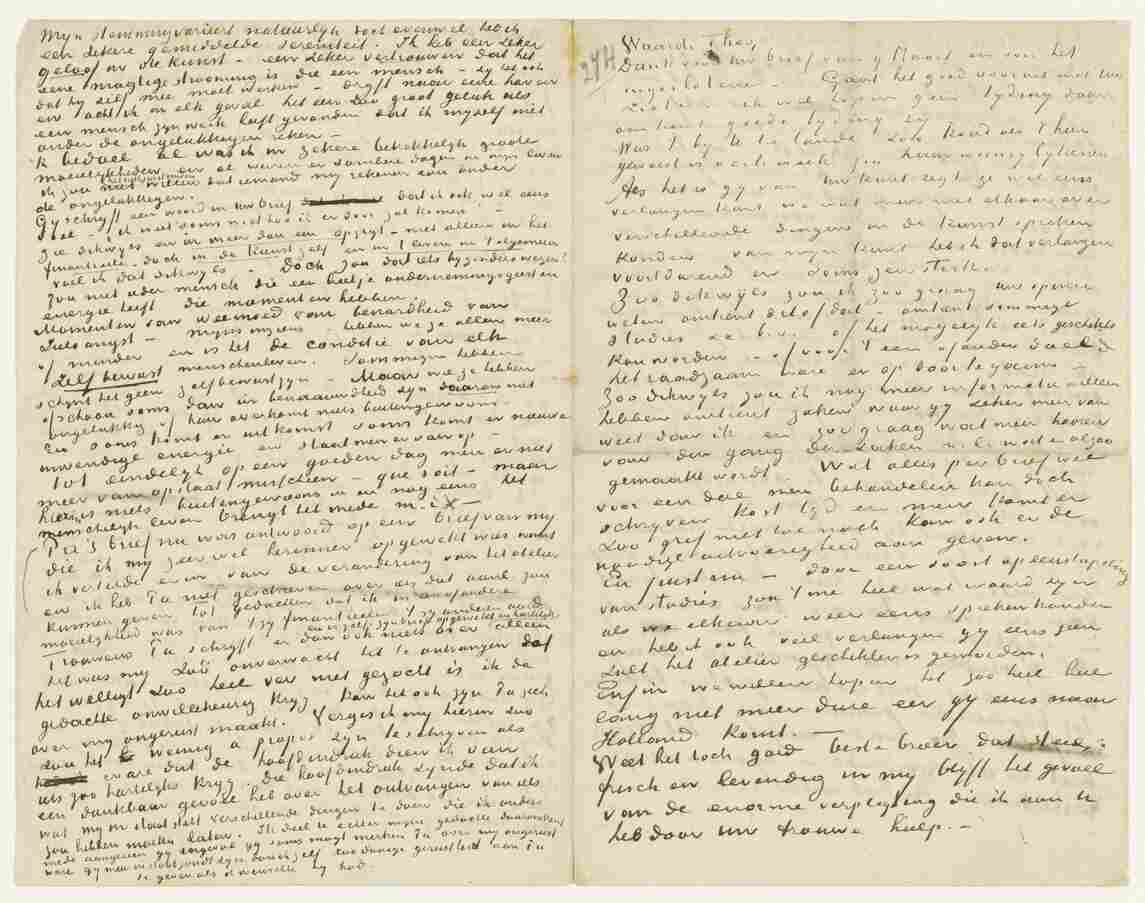 Mijn stemming varieert natuurlijk doch evenwel heb ik
een zekere gemiddelde sereniteit. Ik heb een zeker
geloof in de kunst – een zeker vertrouwen dat het
eene magtige strooming is die een mensch –
dat hij zelf mee moet werken – drijft naar eene haven
en acht ik in elk geval het een zoo groot geluk als
een mensch zijn werk heeft gevonden dat ik mijzelf niet
onder de ongelukkigen reken –
'k bedoel al was ik in zekere betrekkelijk groote
moeielijkheden en al waren er sombere dagen in mijn leven
ik zou niet willen dat iemand mij rekenen zou onder
de ongelukkigen.
Gij schrijft een woord in Uw brief dat ik ook wel eens
voel – "ik weet soms niet hoe ik er door zal komen" –
Zie dikwijls en in meer dan een opzigt – niet alleen in het
financieele – doch in de kunst zelf en in 't leven in 't algemeen
voel ik dat dikwijls – Doch zou dat iets bijzonders wezen?
Zou niet ieder mensch die een beetje ondernemingsgeest en
energie heeft die momenten hebben.
Momenten van weemoed van benardheid van
zielsangst – mijns inziens – hebben we ze allen meer
of minder en is het de conditie van elk
zelfbewust menschenleven. Sommigen hebben
schijnt het geen zelfbewustzijn – Maar wie ze hebben
ofschoon soms daar in benaauwdheid zijn daarom niet
ongelukkig of hun overkomt niets buitengewoons –
En soms komt er uitkomst soms komt er nieuwe
inwendige energie en staat men er van op –
tot eindelijk op een goeden dag men er niet
meer van opstaat misschien – que soit – maar
is niets buitengewoons in en nog eens het
menschelijk leven brengt het mede m.i.
Pa's brief nu was antwoord op een brief van mij
die ik mij zeer wel herinner opgewekt was want
ik vertelde erin van de verandering van het atelier
en ik heb Pa niet geschreven over iets dat aanl. zou
kunnen geven tot gedachten dat ik in eenigerlei
moeielijkheid was van 't zij financieelen 't zij anderen aard
Trouwens Pa schrijft er dan ook niets over alleen
het was mij zoo onverwacht het te ontvangen dat
het welligt zoo heel ver niet gezocht is ik de
gedachte onwillekeurig krijg kan het ook zijn Pa zich
over mij ongerust maakt. Vergis ik mij hierin zoo
zou het weinig à propos zijn te schrijven als
ware dat de hoofdindruk dien ik van
iets zoo hartelijks krijg. Die hoofdindruk zijnde dat ik
een dankbaar gevoel heb over het ontvangen van iets
wat mij in staat stelt verschillende dingen te doen die ik anders
zou hebben moeten laten. Ik deel U echter mijne gedachte daaromtrent
mede aangezien gij ingeval gij soms mogt merken Pa over mij ongerust
ware gij meer in staat zoudt zijn dan ikzelf eenige geruststell. aan Pa
te geven
274
Waarde Theo,
Dank voor Uw brief van 9 Maart en voor het
ingeslotene. Gaat het goed vooruit met Uw
zieke – ik wil hopen geen tijding daar
omtrent goede tijding zij
Was 't bij U te lande zoo koud als 't hier
geweest is
Als het is gij van Uw kant zegt ge wel eens
verlangen kunt we wat meer met elkaar over
verschillende dingen in de kunst spreken
konden van mijn kant heb ik dat verlangen
voortdurend en soms zeer sterk.
Zoo dikwijls zou ik zoo graag Uw opinie
weten omtrent dit of dat – omtrent sommige
studies of het mogelijk iets geschikts
kan worden – of voor 't een of ander doel
het raadzaam ware er op door te gaan –
Zoo dikwijls zou ik nog meer informatie willen
hebben omtrent zaken waar gij zeker meer van
weet dan ik en zoo graag wat meer hooren
van den gang der zaken
gemaakt wordt. Wel alles per brief wel
voor een deel men behandelen kan doch
schrijven kost tijd en men komt er
zoo grif niet toe noch kan ook er de
noodige uitvoerigheid aan geven.
En juist nu – door een soort opeenstapeling
van studies zou 't me heel wat waard zijn
als we elkaar weer eens spreken konden
en heb ik ook veel verlangen gij eens zien
zult het atelier geschikter is geworden.
Enfin we willen hopen het zoo heel heel
lang niet meer dure eer gij eens naar
Holland komt. –
Weet het toch goed beste broer dat steeds
frisch en levendig in mij blijft het gevoel
van de enorme verpligting die ik aan U
heb door Uw trouwe hulp. –